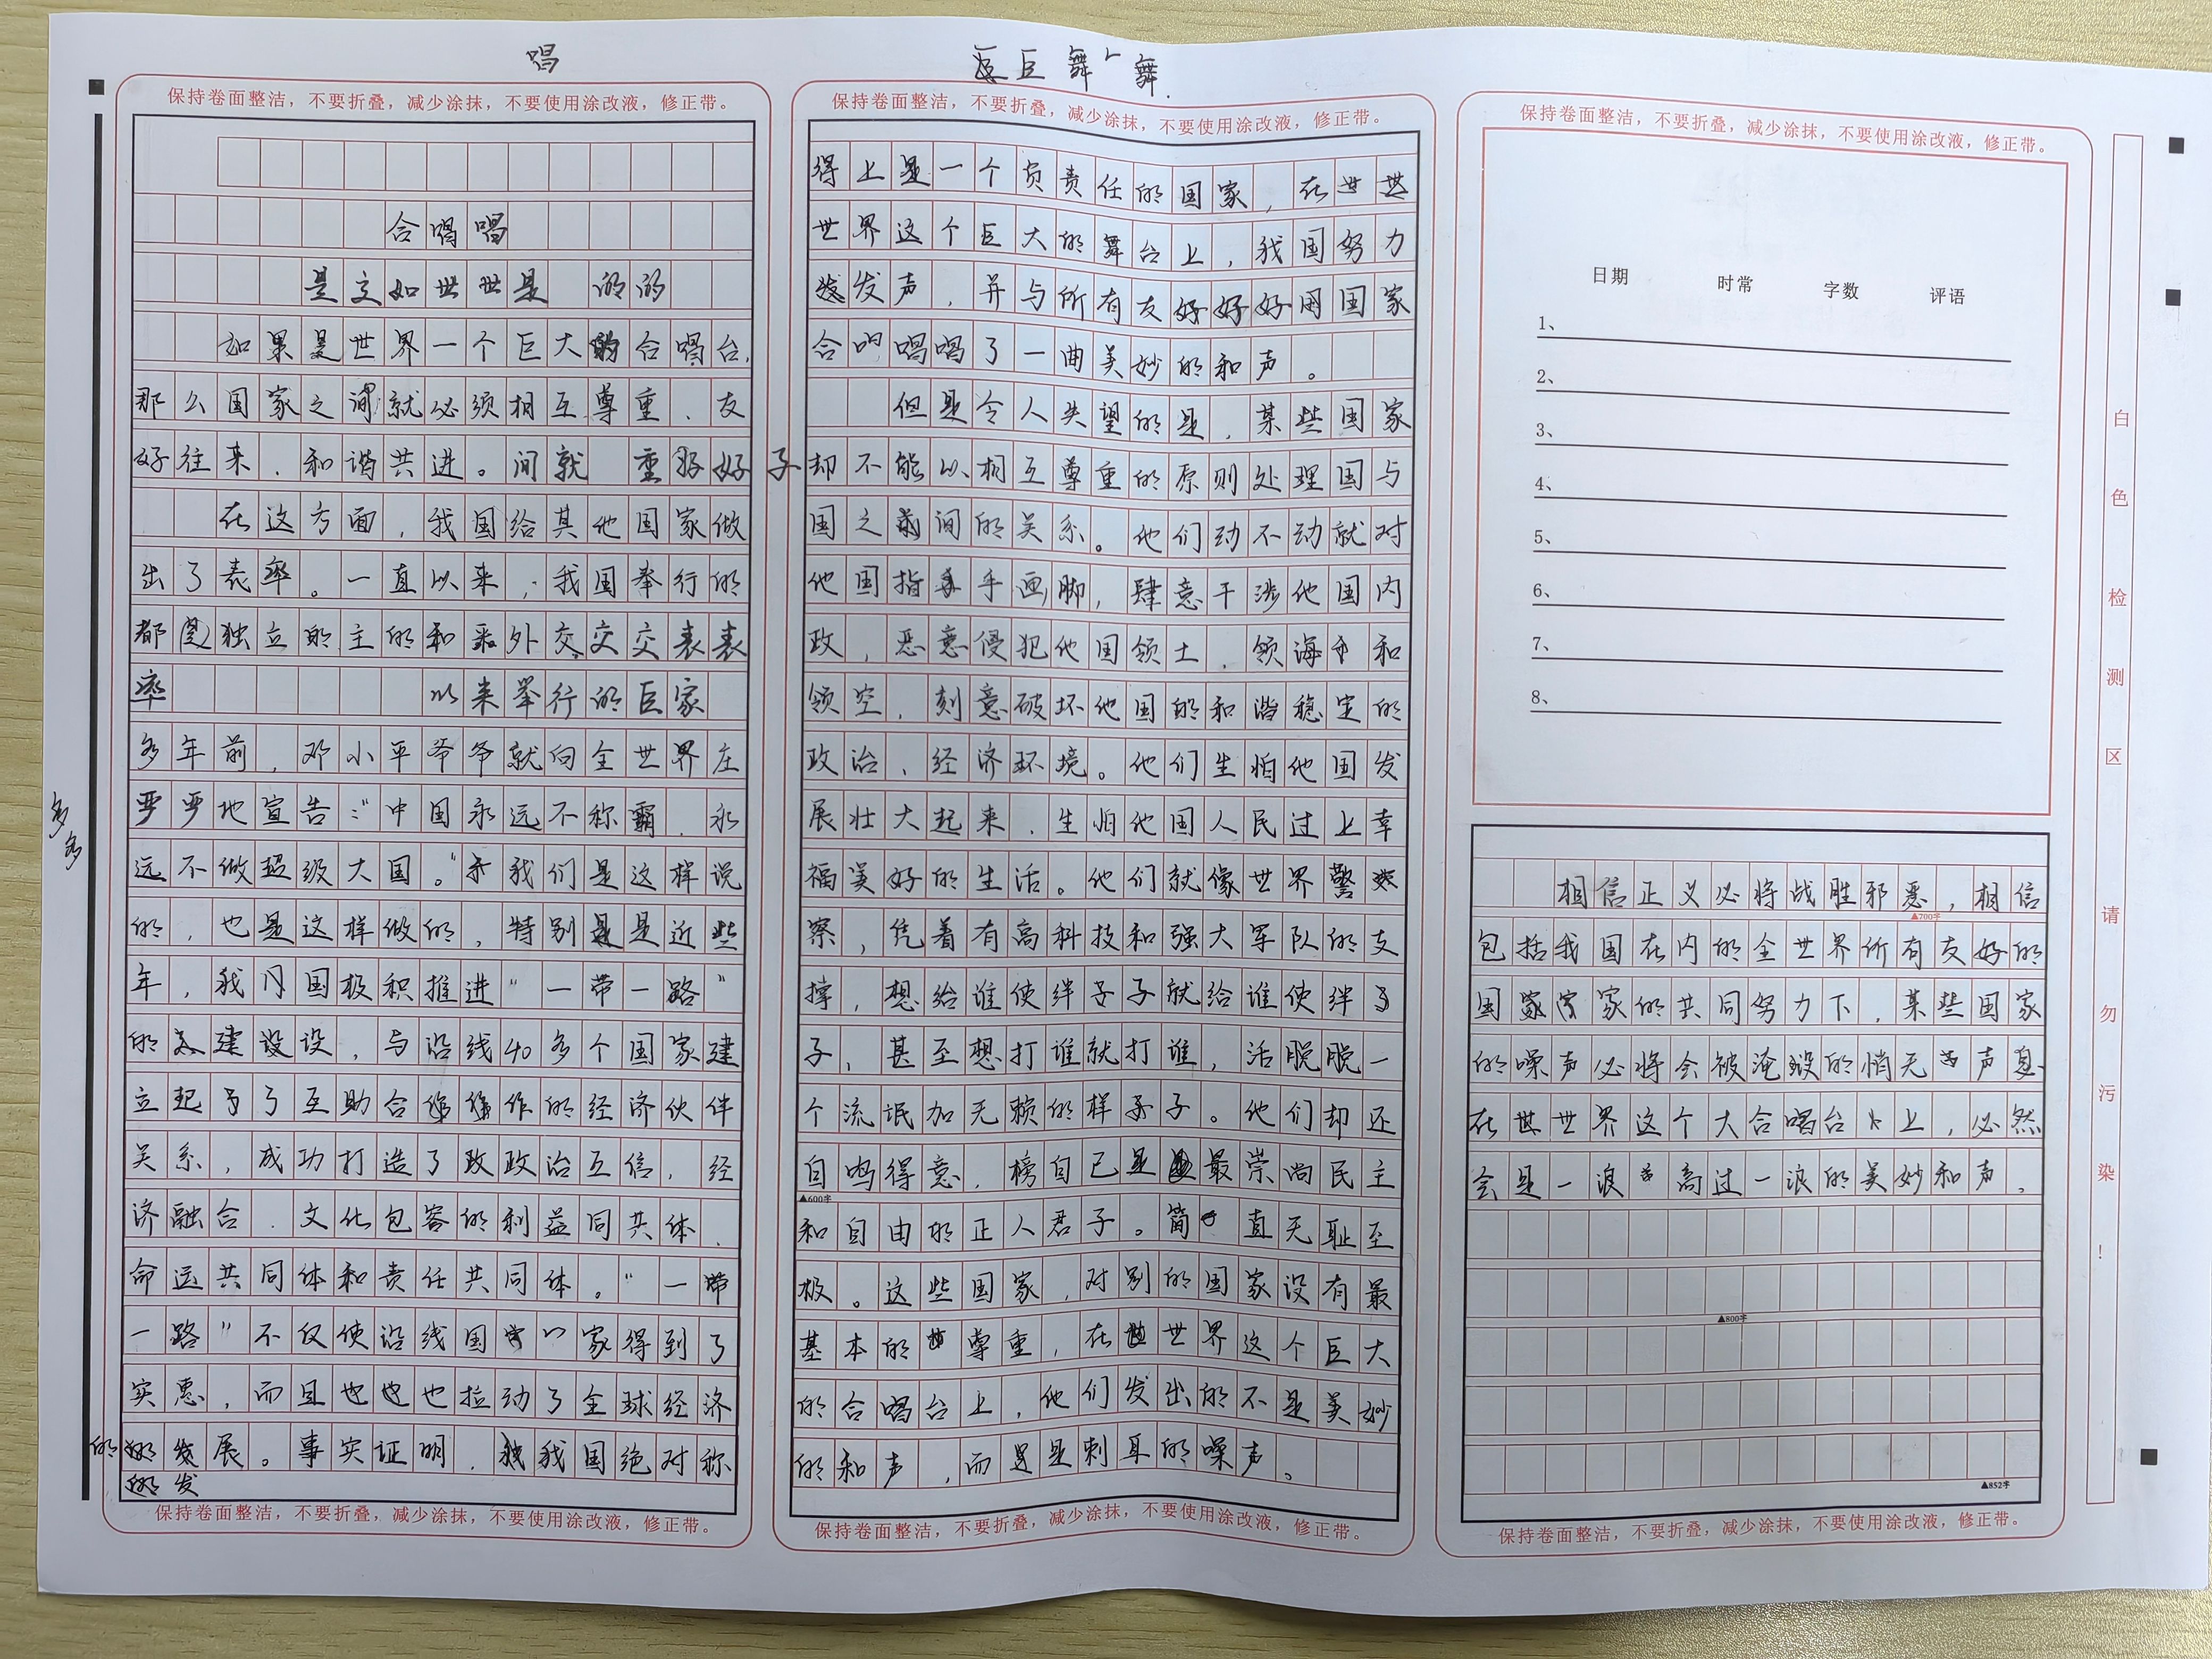 唱
保持卷面整洁，不要折叠，减少涂抹，不要使用涂改液，修正带。
合唱唱
是文如世世是 的的
如果是世界一个巨大的合唱台，
那么国家之间就必须相互尊重、友
好往来、和谐共进。间就 重好好子
在这方面，我国给其他国家做
出了表率。一直以来，我国奉行的
都是独立的主的和平外交交交表表
率 以来举行的巨家
多年前，邓小平爷爷就向全世界庄
严严地宣告：“中国永远不称霸、永
多多
远不做超级大国。”我们是这样说
的，也是这样做的，特别是是近些
年，我月国极积推进“一带一路”
的建设设，与沿线40多个国家建
立起了互助合作作作的经济伙伴
关系，成功打造了政政治互信，经
济融合、文化包容的利益同共体、
命运共同体和责任共同体。“一带
一路”不仅使沿线国家得到了
实惠，而且也也也拉动了全球经济
的的发展。事实证明，我我国绝对称
的发
保持卷面整洁，不要折叠，减少涂抹，不要使用涂改液，修正带。
巨巨舞舞
保持卷面整洁，不要折叠，减少涂抹，不要使用涂改液，修正带。
得上是一个负责任的国家，在世世
世界这个巨大的舞台上，我国努力
发发声，并与所有友好好好用国家
合唱唱唱了一曲美妙的和声。
但是令人失望的是，某些国家
却不能以相互尊重的原则处理国与
国之间的关系。他们动不动就对
他国指手画脚，肆意干涉他国内
政，恶意侵犯他国领土、领海和
领空，刻意破坏他国的和谐稳定的
政治、经济环境。他们生怕他国发
展壮大起来，生怕他国人民过上幸
福美好的生活。他们就像世界警
察，凭着有高科技和强大军队的支
撑，想给谁使绊子子就给谁使绊子
子，甚至想打谁就打谁，活脱脱一
个流氓加无赖的样子子。他们却还
自鸣得意，榜自己是是最崇尚民主
▲600字
和自由的正人君子。简直无耻至
极。这些国家，对别的国家没有最
基本的尊重，在世世界这个巨大
的合唱台上，他们发出的不是美妙
的和声，而是是刺耳的噪声。
保持卷面整洁，不要折叠，减少涂抹，不要使用涂改液，修正带。
保持卷面整洁，不要折叠，减少涂抹，不要使用涂改液，修正带。
日期 时常 字数 评语
1、
2、
3、
4、
5、
6、
7、
8、
相信正义必将战胜邪恶，相信
▲700字
包括我国在内的全世界所有友好的
国家家家的共同努力下，某些国家
的噪声必将会被淹没的悄无声息
在世世界这个大合唱台上，必然
会是一浪高过一浪的美妙和声。
▲800字
▲852字
保持卷面整洁，不要折叠，减少涂抹，不要使用涂改液，修正带。
白色检测区 请勿污染！